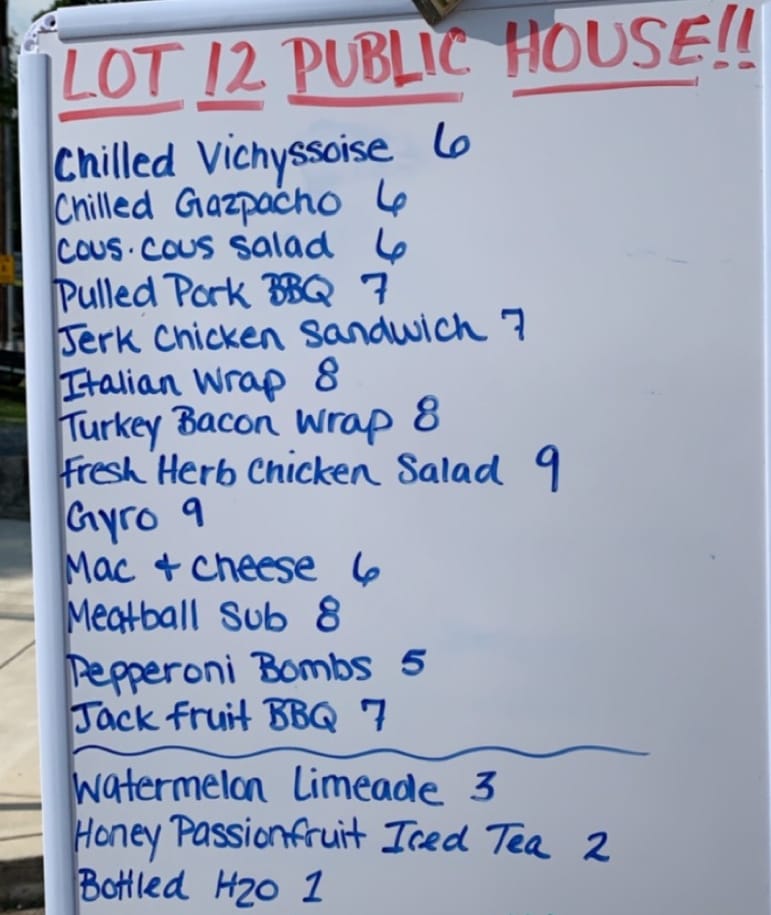 LOT 12 PUBLIC HOUSE!!
Chilled Vichyssoise 6
Chilled Gazpacho 6
Cous·Cous Salad 6
Pulled Pork BBQ 7
Jerk Chicken Sandwich 7
Italian Wrap 8
Turkey Bacon Wrap 8
Fresh Herb Chicken Salad 9
Gyro 9
Mac + Cheese 6
Meatball Sub 8
Pepperoni Bombs 5
Jack fruit BBQ 7
Watermelon Limeade 3
Honey Passionfruit Iced Tea 2
Bottled H2O 1